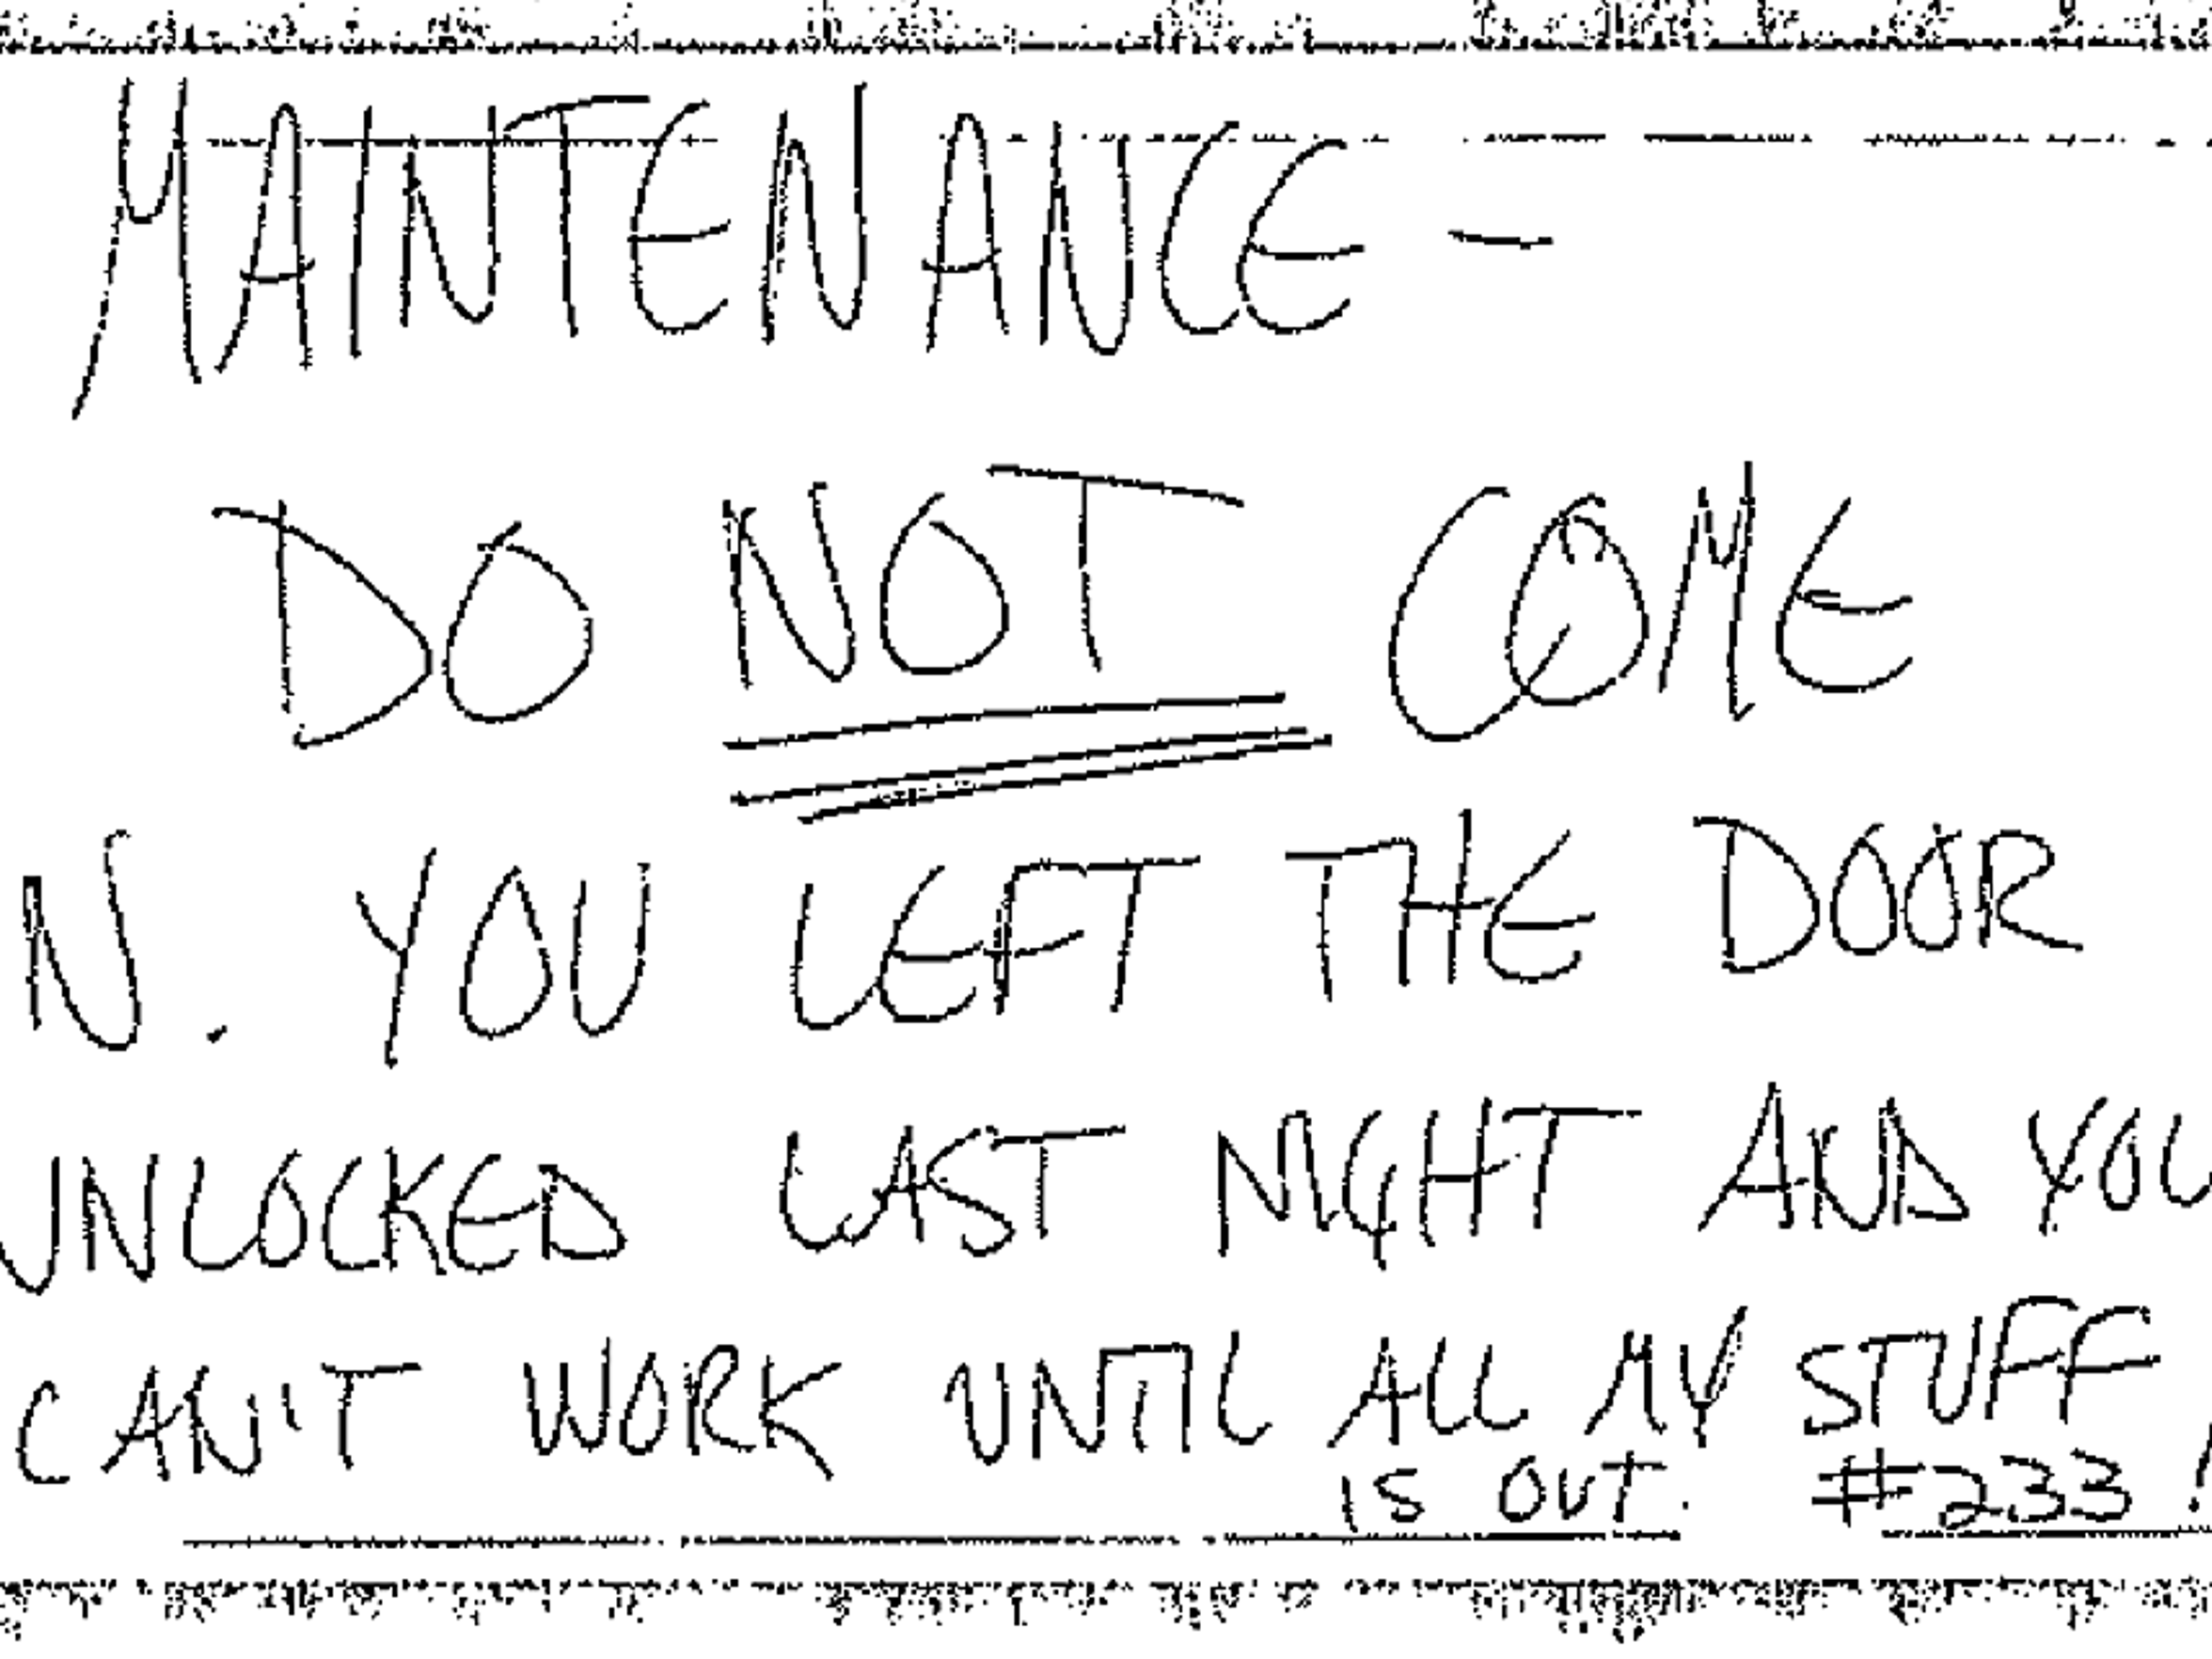 MAINTENANCE -
DO NOT COME
N. YOU LEFT THE DOOR
UNLOCKED LAST NIGHT AND YOU
CAN'T WORK UNTIL ALL MY STUFF
IS OUT. #233!